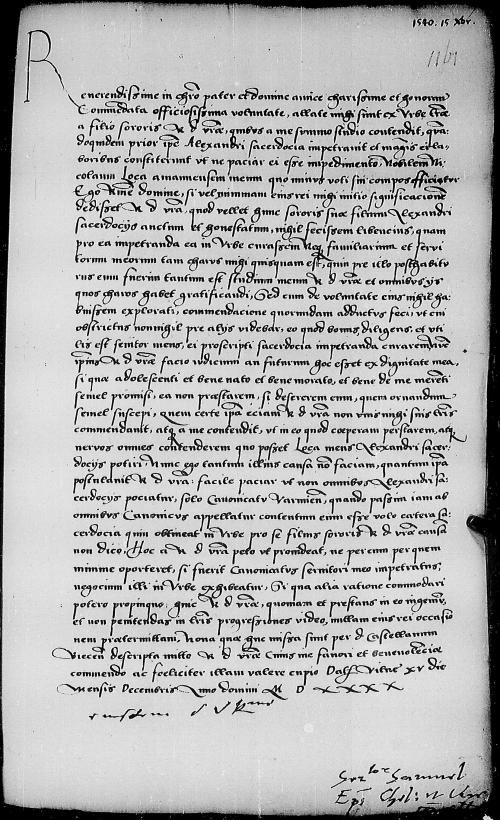 1540. 15 Xbr.
Reuerendissime in chro pater et domine amice charissime et honoran
Commendata officiosissima voluntate, allate mihi sunt ex Vrbe lrae
a filio sororis R d vrae, quibus a me summo studio contendit, qua
doquidem prior ipe Alexandri sacerdocia impetrauit et magis ex la
boribus constiterint vt ne paciar ei esse impedimento, Nobilem Ni
colaum Loca amanuensem meum quo minus voti sui compos efficiatur
Ego Rme domine, si vel minimam eius rei mihi initio significacionem
dedisset R d vra, quod vellet hunc sororis suae filium Alexandri
sacerdocijs auctum et honestatum, nihil fecissem libencius, quam
pro ea impetranda ea in Vrbe curassem Neq familiarium et serui
torum meorum tam charus mihi quisquam est, quin pre illo posthabitu
rus eum fuerim tantum est studium meum R d vrae et omnibus ijs
quos charos habet gratificandi, Sed cum de voluntate eius nihil ha
buissem explorati, commendacione quorundam adductus feci, vt cui
obstrictus nonnihil pre alijs videbar, eo quod bonus, diligens, et vti
lis est seruitor meus, ei proscripti sacerdocia impetranda curarem
ipsius R d vrae facio iudicium an futurum hoc esset ex dignitate mea,
si quae adolescenti et bene nato et bene morato, et bene de me merenti
semel promisi, ea non praestarem, si desererem eum, quem ornandum
semel suscepi, Quem certe ipa eciam R d vra non vnis mihi suis lris
commendauit, atq a me contendit, vt in eo quod coeperam perstarem, atq
neruos omnes contenderem quo posset Loca meus Alexandri sacer
docijs potiri Nunc ego tantum illius causa non faciam, quantum ipa
postulauit R d vra: facile paciar vt non omnibus Alexandri sa
cerdocijs pociatur, solo Canonicatu Varmien, quando passim iam ab
omnibus Canonicus appellatur contentum eum esse volo catera sa
cerdocia quin obtineat in Vrbe pro se filius sororis R d vrae causa
non dico, Hoc a R d vra peto vt prouideat, ne per eum per quem
minime oporteret, si fuerit Canonicatus seruitori meo impetratus,
negocium illi in Vrbe exhibeatur, Si qua alia ratione commodari
potero propinquo, huic R d vrae, quoniam et prestans in eo ingenium,
et non penitendas in lris progressiones video, nullam eius rei occasio
nem praetermittam, Noua quae huc missa sunt per d Castellanum
Viecen descripta mitto R d vrae Cuius me fauori et beneuolenciae
commendo ac foeliciter illam valere cupio Dat Vilnae xv die
Mensis Decembris Anno domini M D XXXX
Samuel
Epi